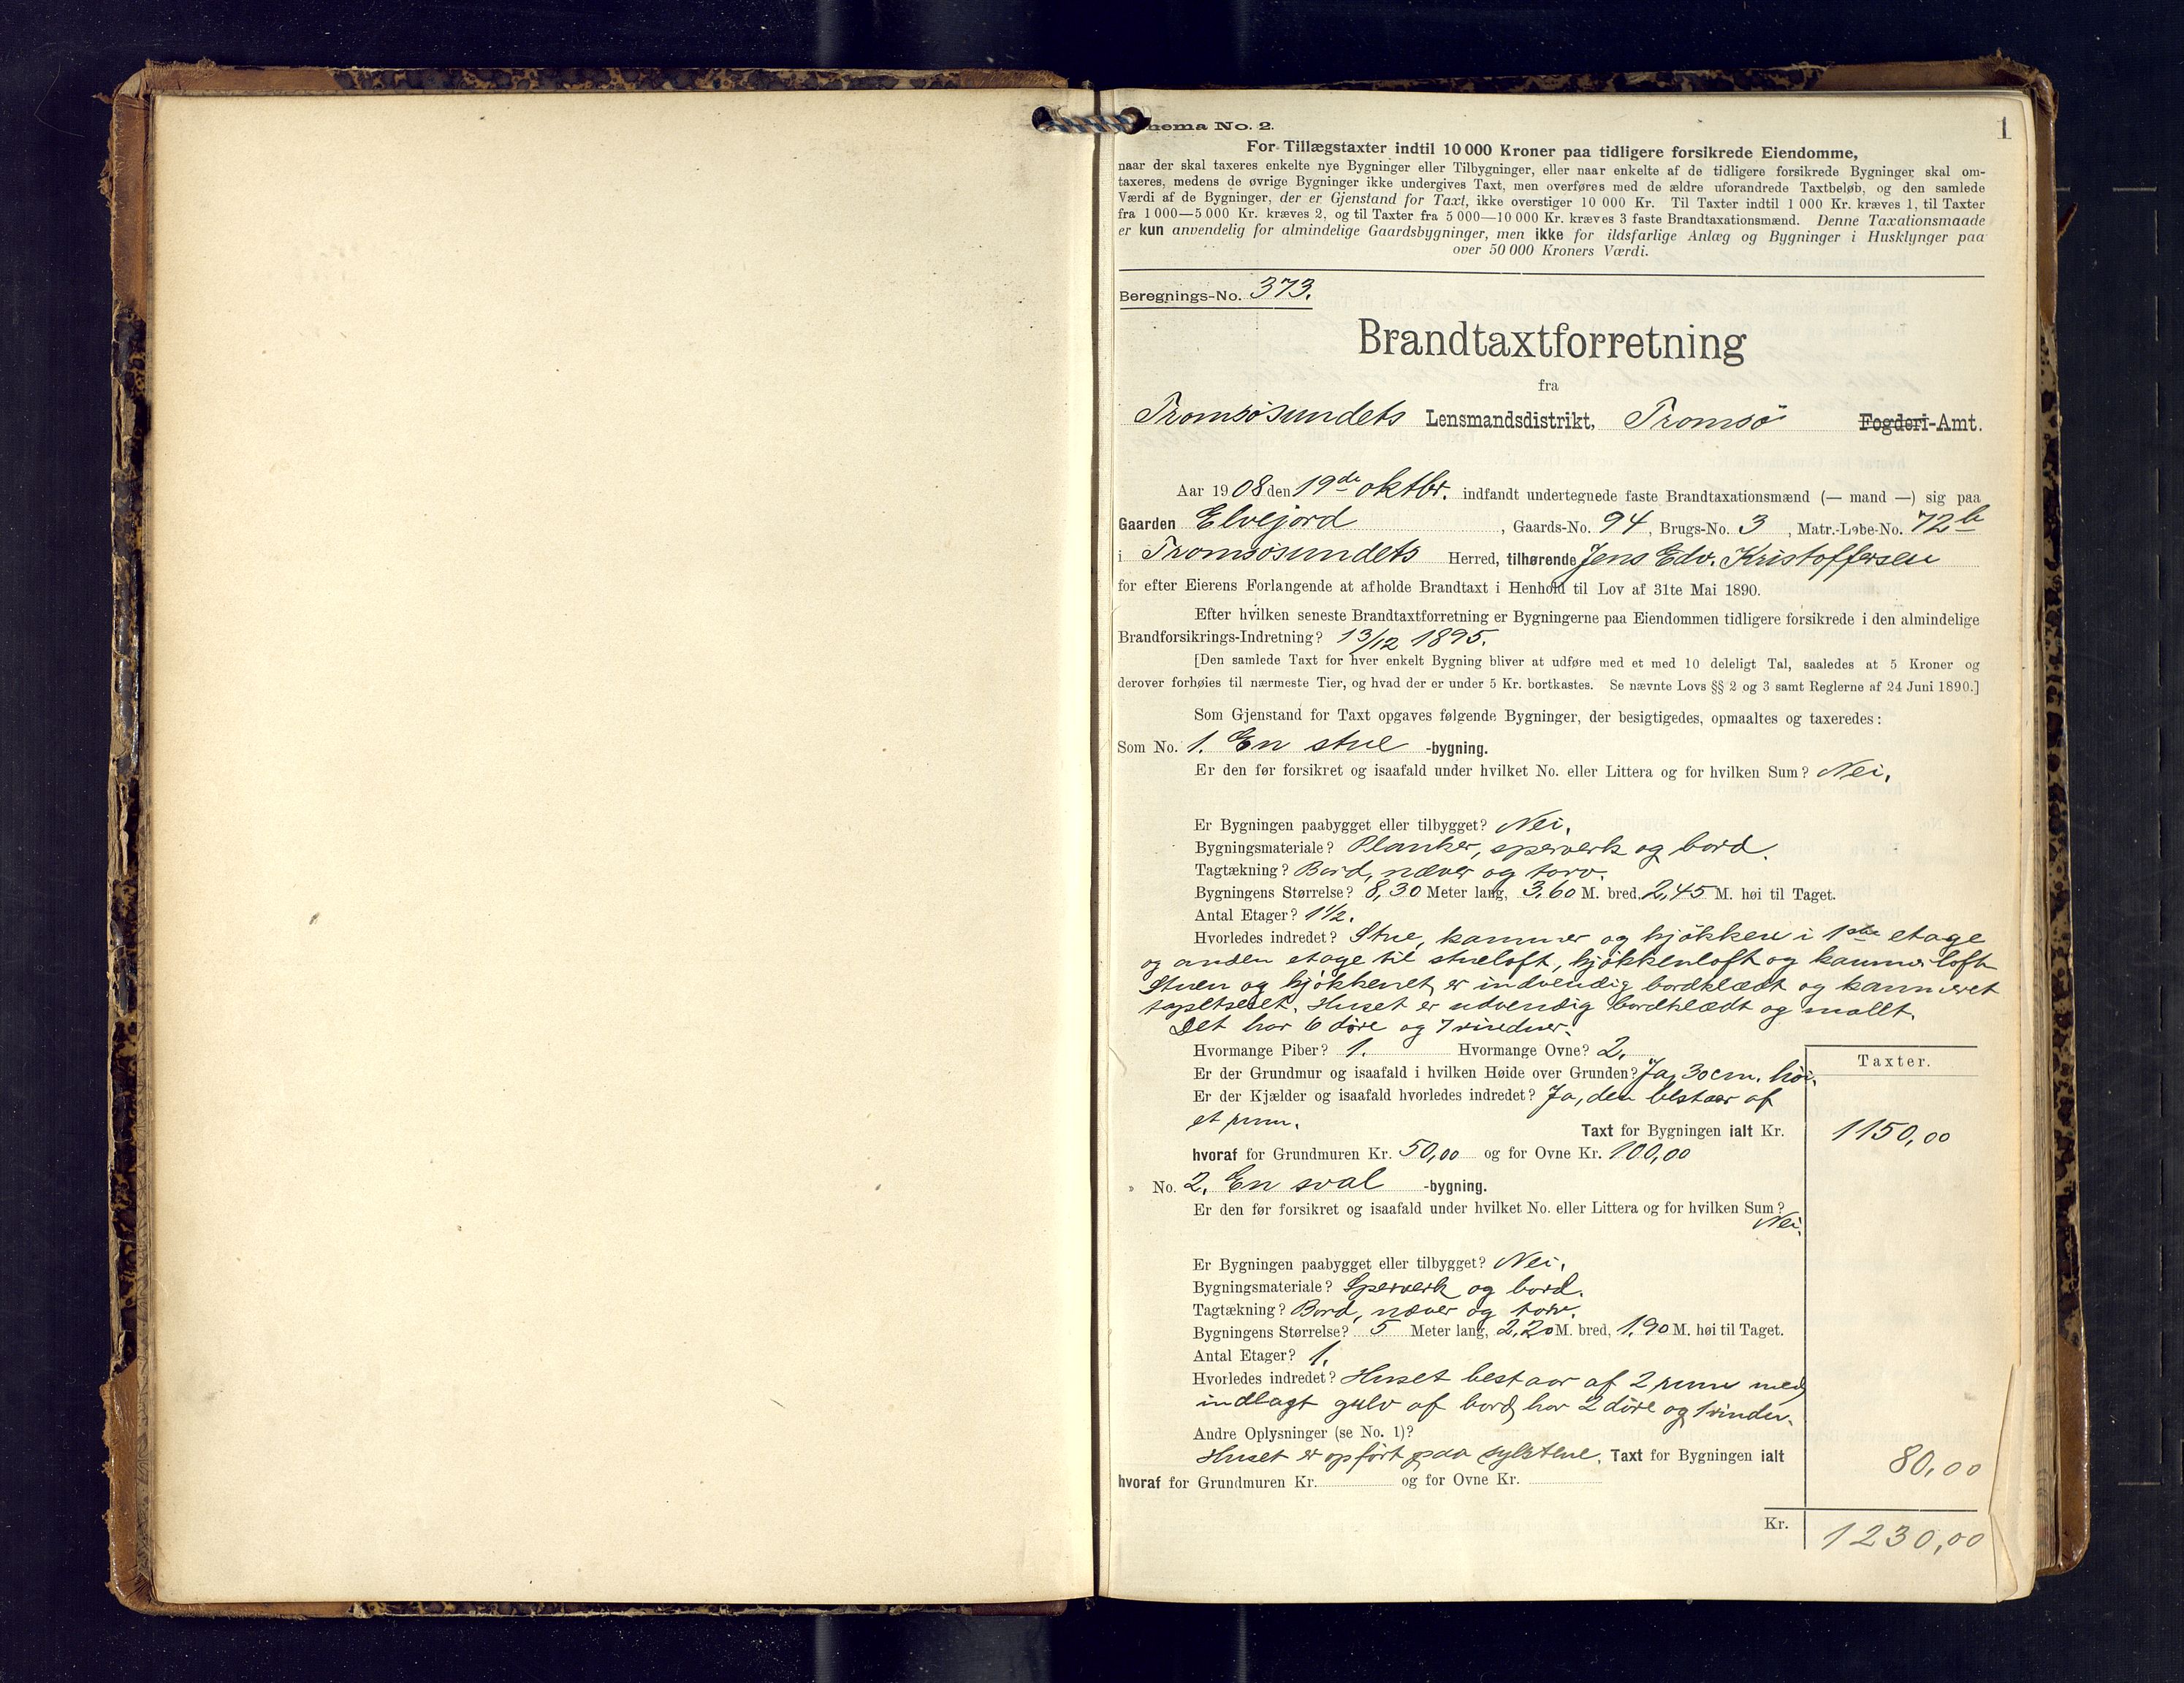 hema No. 2.
1
For Tillægstaxter indtil 10 000 Kroner paa tidligere forsikrede Eiendomme,
naar der skal taxeres enkelte nye Bygninger eller Tilbygninger, eller naar enkelte af de tidligere forsikrede Bygninger skal om-
taxeres, medens de øvrige Bygninger ikke undergives Taxt, men overføres med de ældre uforandrede Taxtbeløb, og den samlede
Værdi af de Bygninger, der er Gjenstand for Taxt, ikke overstiger 10 000 Kr. Til Taxter indtil 1 000 Kr. kræves 1, til Taxter
fra 1 000—5 000 Kr. kræves 2, og til Taxter fra 5 000—10 000 Kr. kræves 3 faste Brandtaxationsmænd. Denne Taxationsmaade
er kun anvendelig for almindelige Gaardsbygninger, men ikke for ildsfarlige Anlæg og Bygninger i Husklynger paa
over 50 000 Kroners Værdi.
Beregnings-No. 373.
Brandtaxtforretning
fra
Tromsøsundets Lensmandsdistrikt, Tromsö Fogderi-Amt.
Aar 1908 den 19de oktbr. indfandt undertegnede faste Brandtaxationsmænd (— mand —) sig paa
Gaarden Elvejord, Gaards-No. 94, Brugs-No. 3, Matr.-Løbe-No. 72b
i Tromsösundets Herred, tilhørende Jens Edv. Kristoffersen
for efter Eierens Forlangende at afholde Brandtaxt i Henhold til Lov af 31te Mai 1890.
Efter hvilken seneste Brandtaxtforretning er Bygningerne paa Eiendommen tidligere forsikrede i den almindelige
Brandforsikrings-Indretning? 13/12 1895.
[Den samlede Taxt for hver enkelt Bygning bliver at udføre med et med 10 deleligt Tal, saaledes at 5 Kroner og
derover forhøies til nærmeste Tier, og hvad der er under 5 Kr. bortkastes. Se nævnte Lovs §§ 2 og 3 samt Reglerne af 24 Juni 1890.]
Som Gjenstand for Taxt opgaves følgende Bygninger, der besigtigedes, opmaaltes og taxeredes:
Som No. 1. En stue -bygning.
Er den før forsikret og isaafald under hvilket No. eller Littera og for hvilken Sum? Nei.
Er Bygningen paabygget eller tilbygget? Nei.
Bygningsmateriale? Planker, sperverk og bord.
Tagtækning? Bord, næver og torv.
Bygningens Størrelse? 8,30 Meter lang, 3,60 M. bred, 2,45 M. høi til Taget.
Antal Etager? 1 1/2.
Hvorledes indredet? Stue, kammer og kjökken i 1ste etage
og anden etage til stueloft, kjökkenloft og kammerloft
Stuen og kjökkenet er indvendig bordklædt og kammeret
tapetseret. Huset er udvendig bordklædt og mallt.
Det har 6 döre og 7 vinduer.
Hvormange Piber? 1. Hvormange Ovne? 2.
Taxter.
Er der Grundmur og isaafald i hvilken Høide over Grunden? Ja, 30 cm. høi.
Er der Kjælder og isaafald hvorledes indredet? Ja, den bestaar af
et rum.
Taxt for Bygningen ialt Kr. 1150,00
hvoraf for Grundmuren Kr. 50,00 og for Ovne Kr. 100,00
» No. 2. En sval -bygning.
Er den før forsikret og isaafald under hvilket No. eller Littera og for hvilken Sum?
Nei.
Er Bygningen paabygget eller tilbygget? Nei.
Bygningsmateriale? Sperverk og bord.
Tagtækning? Bord, næver og torv.
Bygningens Størrelse? 5 Meter lang, 2,20 M. bred, 1,90 M. høi til Taget.
Antal Etager? 1.
Hvorledes indredet? Huset bestaar af 2 rum med
indlagt gulv af bord, har 2 döre og 1 vindu.
Andre Oplysninger (se No. 1)?
Huset er opfört paa sylstene. Taxt for Bygningen ialt 80,00
hvoraf for Grundmuren Kr. og for Ovne Kr.
Kr. 1230,00